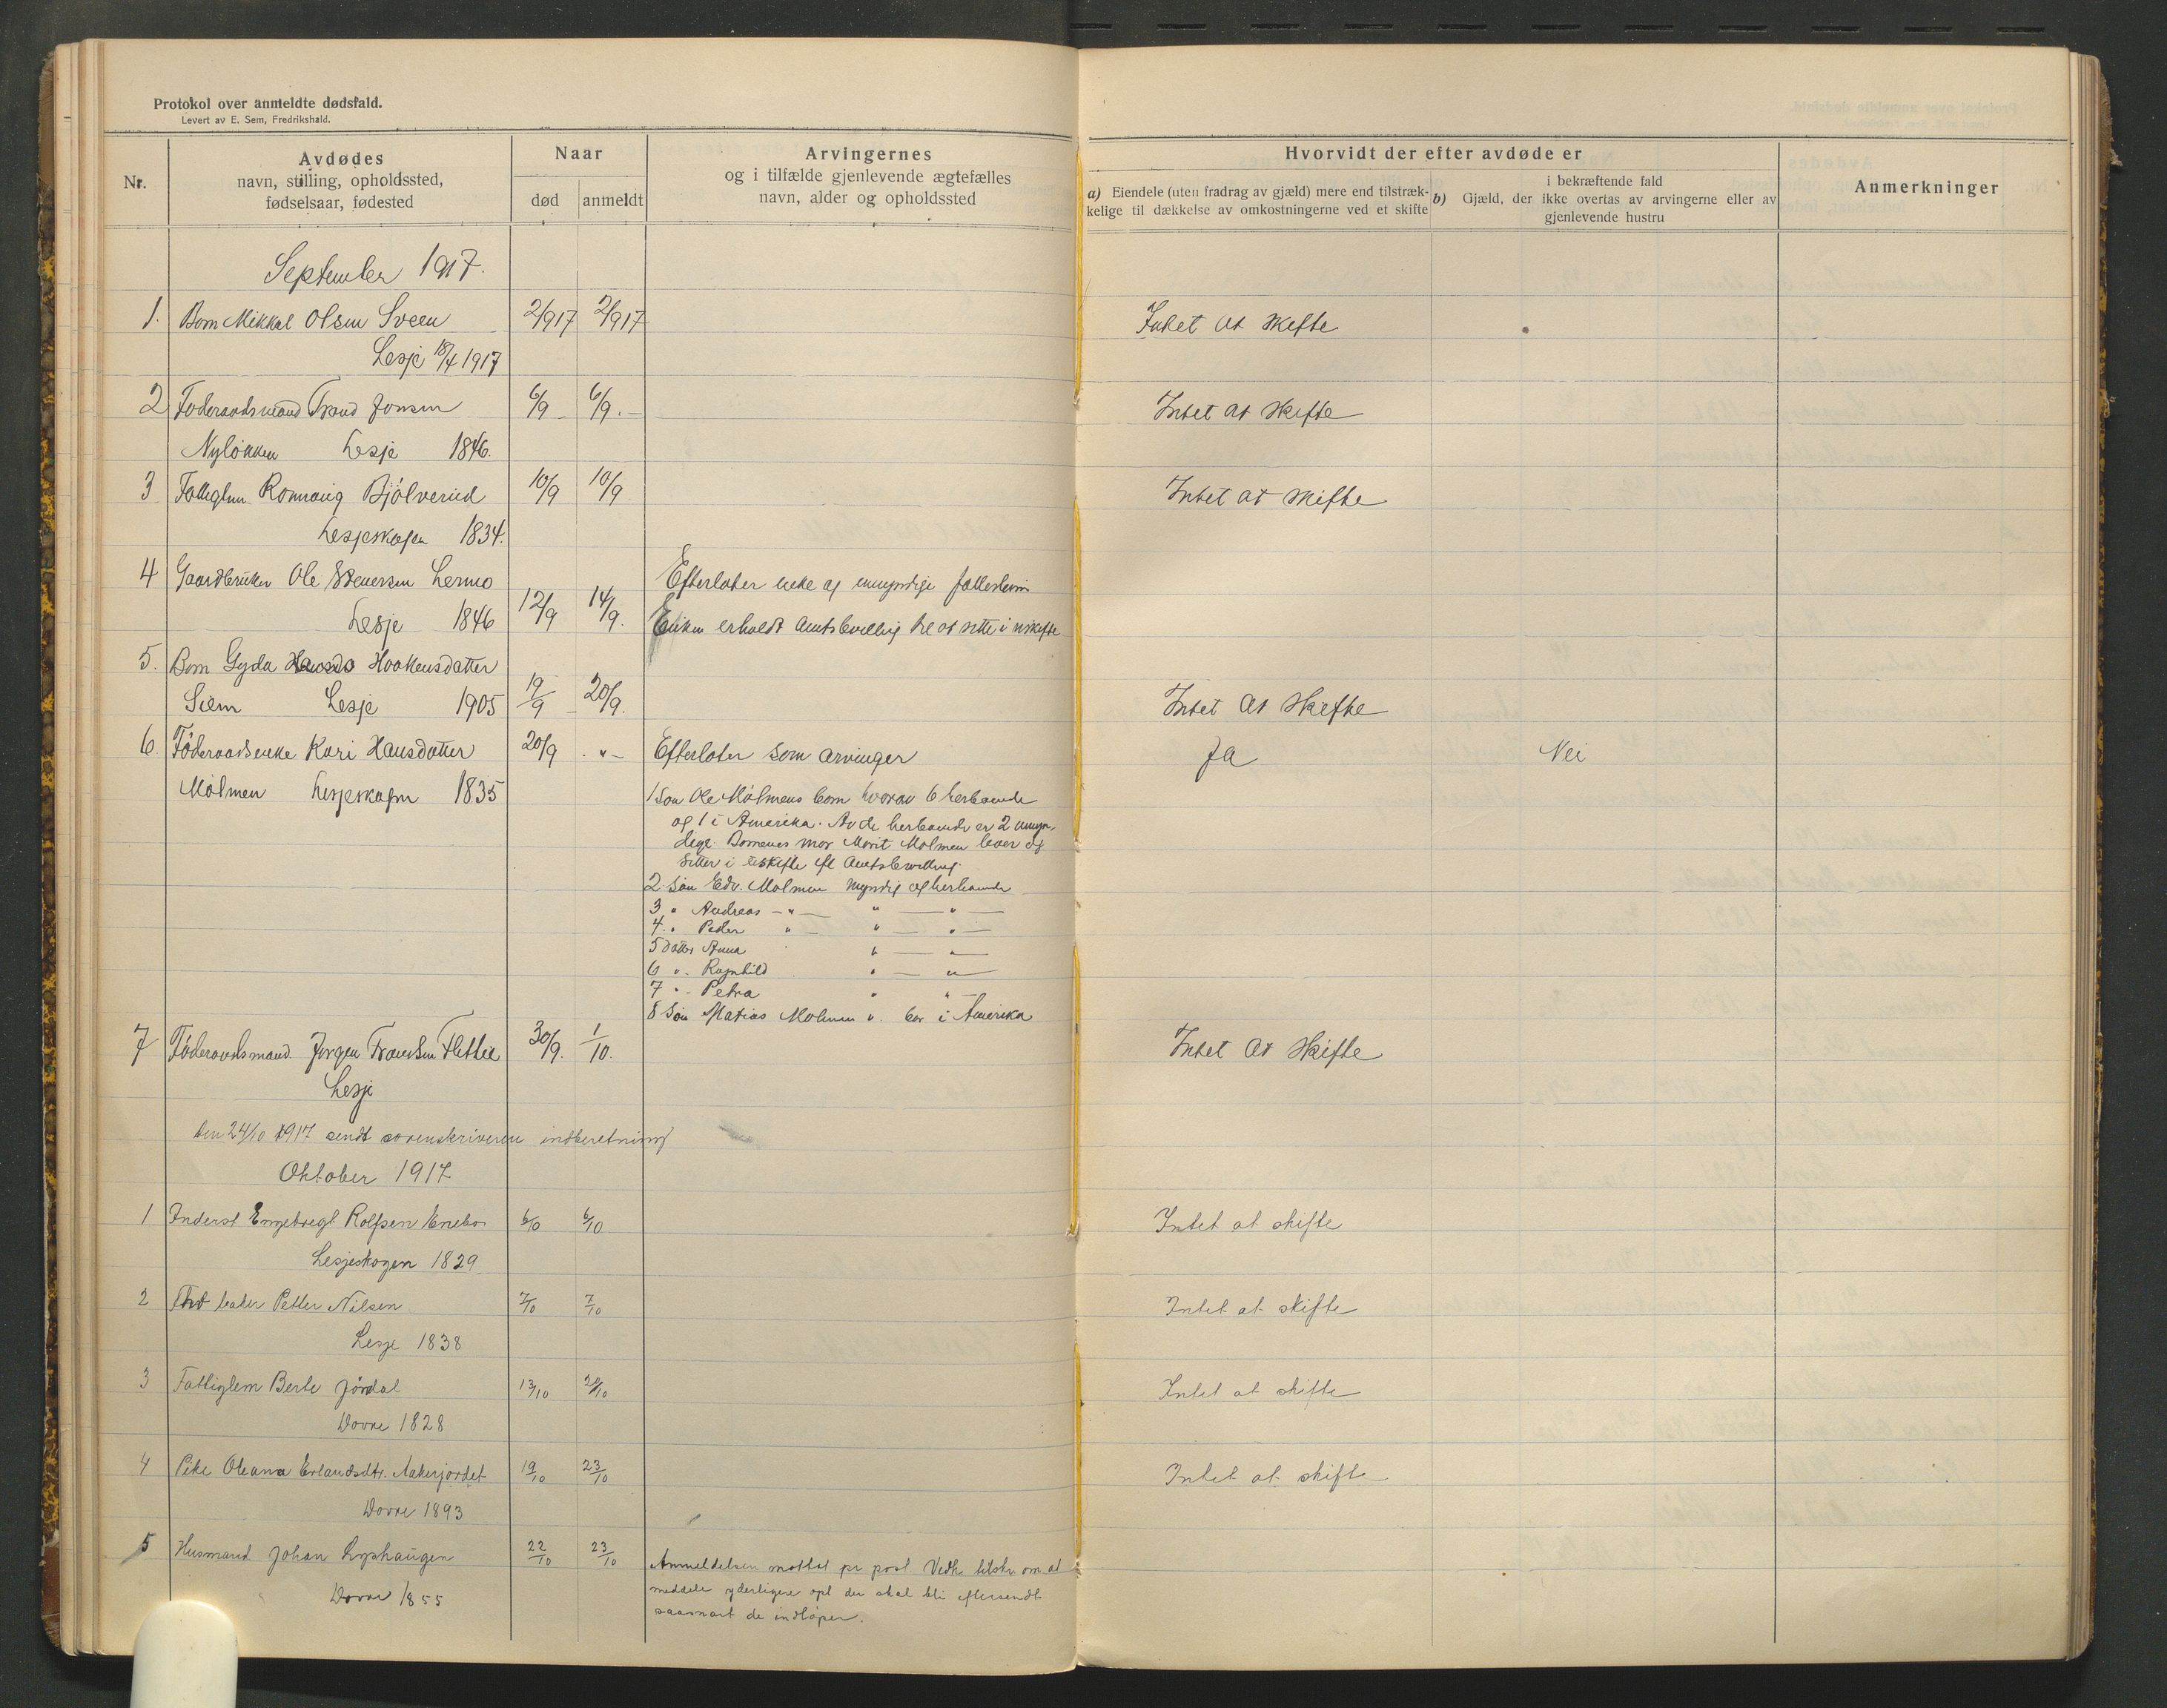 Protokol over anmeldte dødsfald.
Levert av E. Sem, Fredrikshald.
Nr.
Avdødes
navn, stilling, opholdssted,
fødselsaar, fødested
Naar
død
anmeldt
Arvingernes
og i tilfælde gjenlevende ægtefælles
navn, alder og opholdssted
Hvorvidt der efter avdøde er
a) Eiendele (uten fradrag av gjæld) mere end tilstræk-
kelige til dækkelse av omkostningerne ved et skifte
i bekræftende fald
b) Gjæld, der ikke overtas av arvingerne eller av
gjenlevende hustru
Anmerkninger
September 1917.
1. Barn Mikkal Olsen Sveen 2/9 17 2/9 17 Intet at skifte
Lesje 18/4 1917
2 Föderaadsmand Trond Jonsen 6/9 - 6/9 . - Intet at skifte
Nylökken Lesje 1846.
3 Fattiglem Romoug Bjölverud 10/9 10/9 Intet at skifte
Lesjeskogen 1834.
4 Gaardbruker Ole Stenersen Lermo 12/9 14/9. Efterlater enke og umyndige fællesbarn
Lesje 1846 Enken erholdt Amtsbevillig til at sitte i uskifte
5. Barn Gyda Haakensdatter
Siem Lesje 1905 19/9 20/9. Intet at skifte
6. Föderaadsenke Kari Hansdatter 20/9 . " - Efterlater som arvinger Ja Nei
Mölmen Lesjeskogen 1835 1 Sön Ole Mölmens barn hvorav 6 herboende
og 1 i Amerika. Av de herboende er 2 umyn-
dige. Barnenes mor Marit Mölmen lever og
sitter i uskifte efl Amtsbevilling.
2 Sön Edv. Mölmen myndig og herboende
3 " Andreas - " - " - " -
4 . " Peder " - " - " -
5 datter Anna " - " -
6 " - Ragnhild " - " -
7 " - Petra " " -
8 Sön Matias Mölmen " bor i Amerika
7 Föderaadsmand Jörgen Trondsen Flittie 30/9. 1/10. Intet at skifte
Lesje
den 24/10 1917 sendt sorenskriveren indberetning
Oktober 1917
1 Inderst Engebregt Rolfsen Enebo 6/10 6/10 Intet at skifte
Lesjeskogen 1829
2 Petter Nilsen 7/10 7/10 Intet at skifte
Lesje 1838
3 Fattiglem Berte Jördal 13/10 20/10 Intet at skifte
Dovre 1828
4 Pike Oleana Erlandsdtr. Aakerjordet 19/10 23/10 Intet at skifte
Dovre 1893
5 Husmand Johan Lyshaugen 22/10 23/10 Anmeldelsen mottat pr post Vedk. tilskr. om at
Dovre 1855 meddele yderligere opl der skal bli eftersendt
saasnart de indløper.